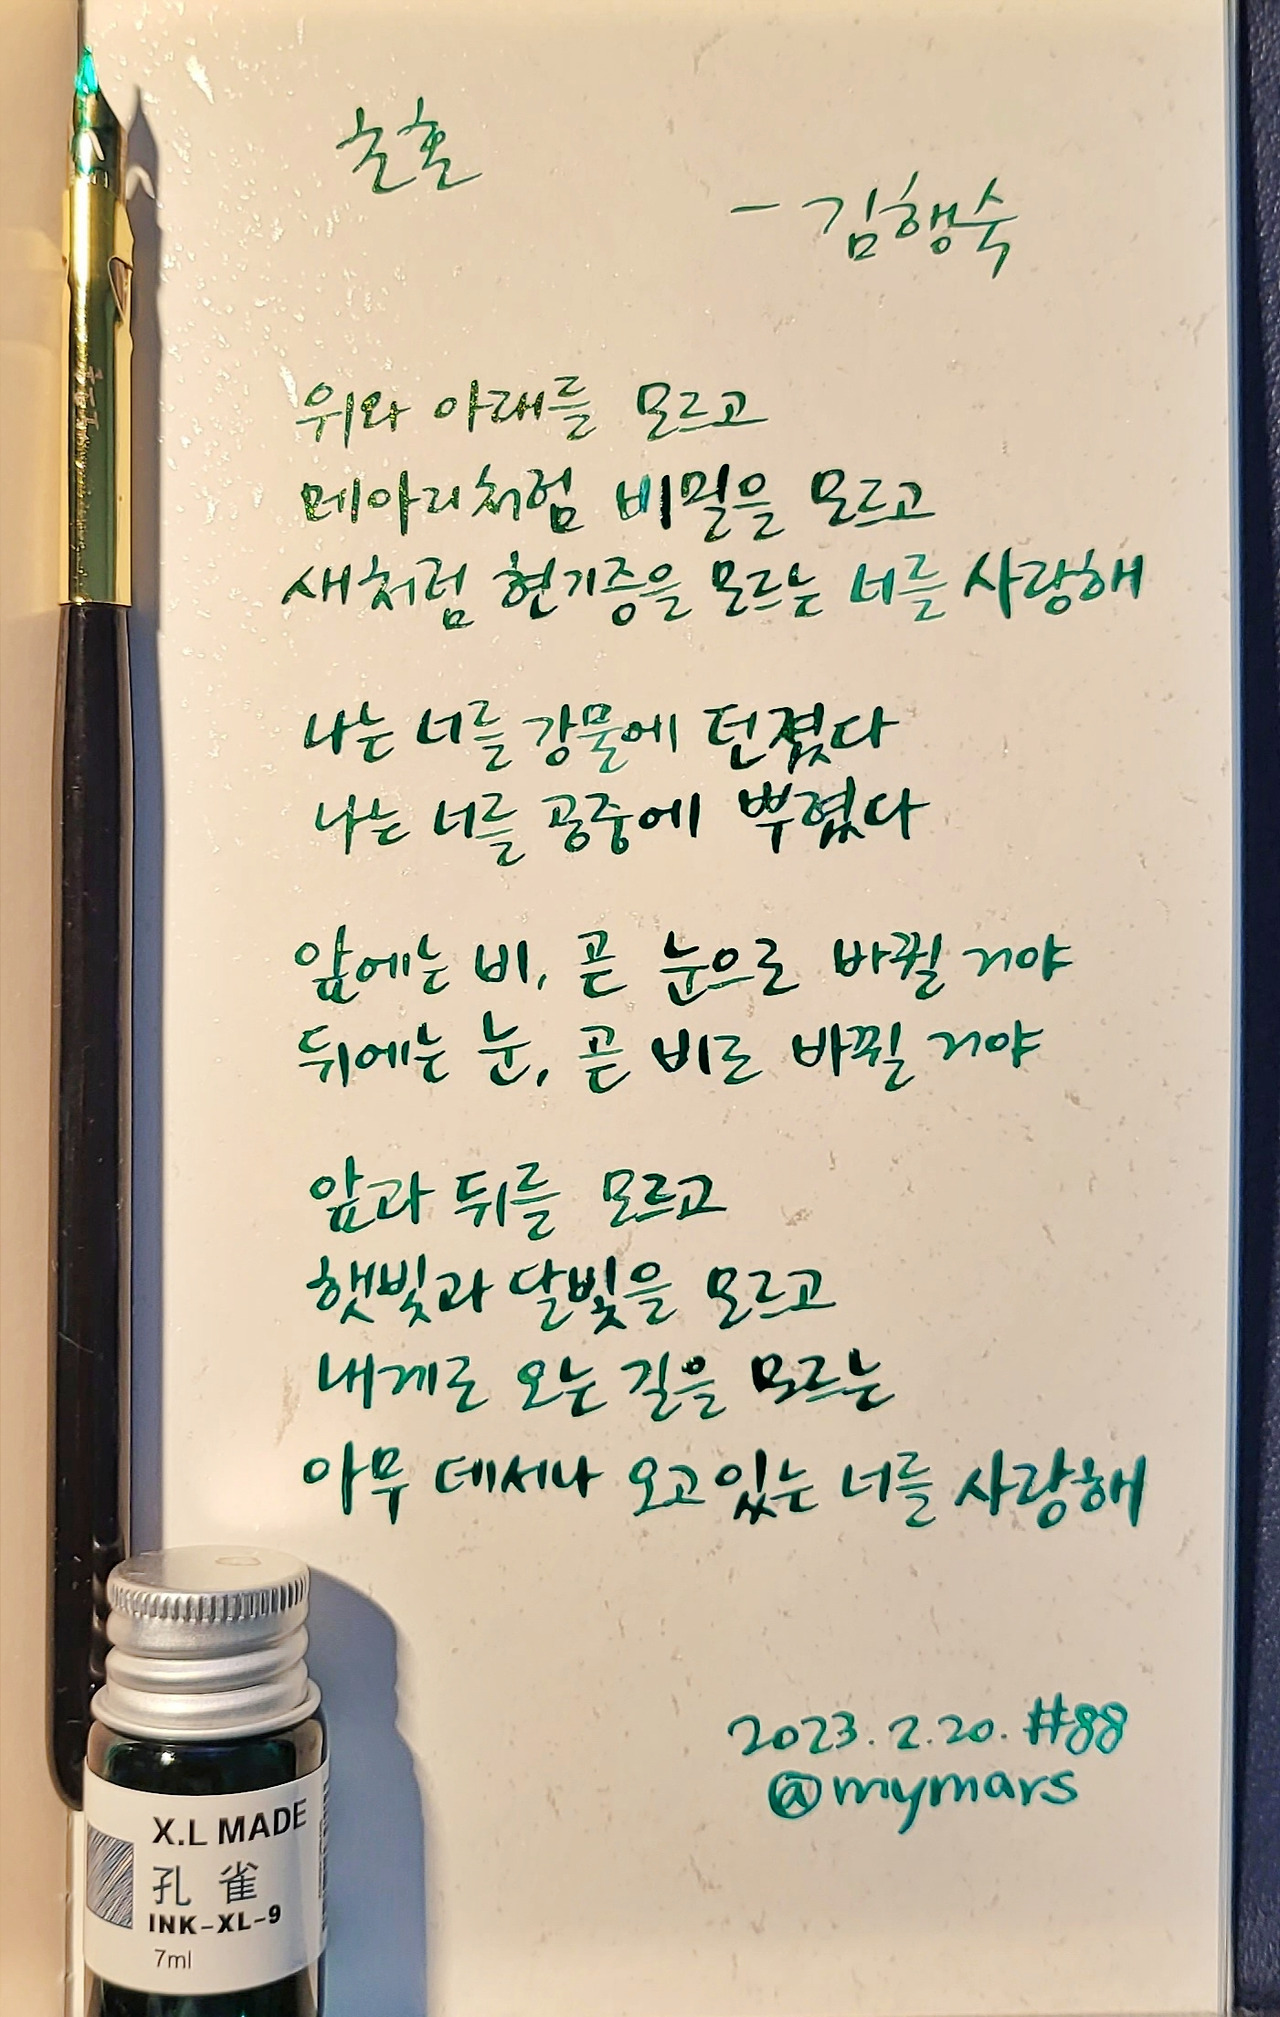 초혼
- 김행숙
위와 아래를 모르고
메아리처럼 비밀을 모르고
새처럼 현기증을 모르는 너를 사랑해
나는 너를 강물에 던졌다
나는 너를 공중에 뿌렸다
앞에는 비, 곧 눈으로 바뀔 거야
뒤에는 눈, 곧 비로 바뀔 거야
앞과 뒤를 모르고
햇빛과 달빛을 모르고
내게로 오는 길을 모르는
아무 데서나 오고있는 너를 사랑해
2023.2.20. #88
@mymars
X.L MADE
孔雀
INK-XL-9
7ml